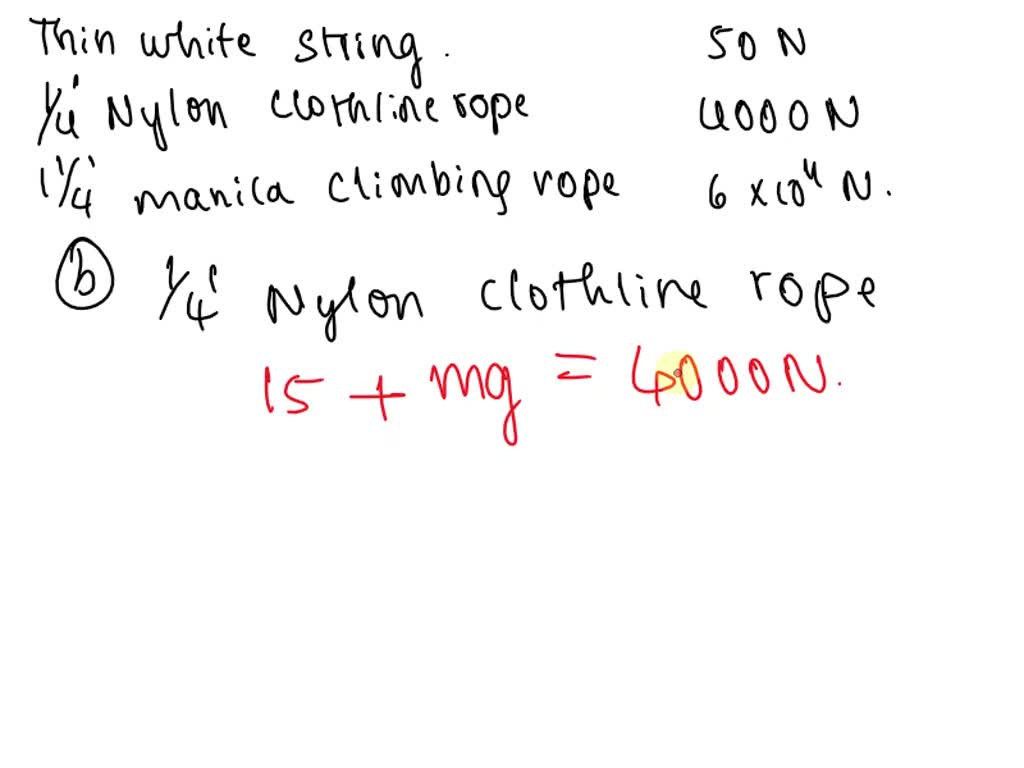 Thin white string. 50 N
1/4' Nylon clothline rope 4000 N
1 1/4' manila climbing rope 6 x 10⁴ N.
b 1/4' Nylon clothline rope
15 + mg = 4000N.